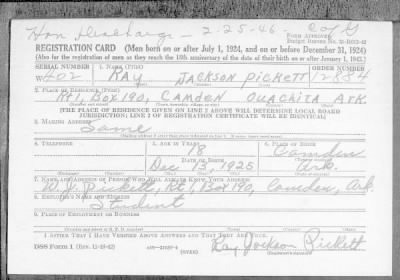 Hon Discharge - 2-25-46 Copy
FORM APPROVED
REGISTRATION CARD (Men born on or after July 1, 1924, and on or before December 31, 1924)
(Also for the registration of men as they reach the 18th anniversary of the date of their birth on or after January 1, 1943.)
SERIAL NUMBER 1. NAME (Print) ORDER NUMBER
W 402 RAY JACKSON PICKETT 12884
2. PLACE OF RESIDENCE (Print)
Rt 1, BOX 190, CAMDEN OUACHITA ARK
[THE PLACE OF RESIDENCE GIVEN ON LINE 2 ABOVE WILL DETERMINE LOCAL BOARD
JURISDICTION; LINE 2 OF REGISTRATION CERTIFICATE WILL BE IDENTICAL]
3. MAILING ADDRESS
Same
4. TELEPHONE 5. AGE IN YEARS 6. PLACE OF BIRTH
18 Camden
DATE OF BIRTH
Dec 13, 1925 Ark.
7. NAME AND ADDRESS OF PERSON WHO WILL ALWAYS KNOW YOUR ADDRESS
W. J. Pickett, Rt 1, Box 190, Camden, Ark.
8. EMPLOYER'S NAME AND ADDRESS
Student
9. PLACE OF EMPLOYMENT OR BUSINESS
I AFFIRM THAT I HAVE VERIFIED ABOVE ANSWERS AND THAT THEY ARE TRUE.
DSS Form 1 (OVER)
Ray Jackson Pickett